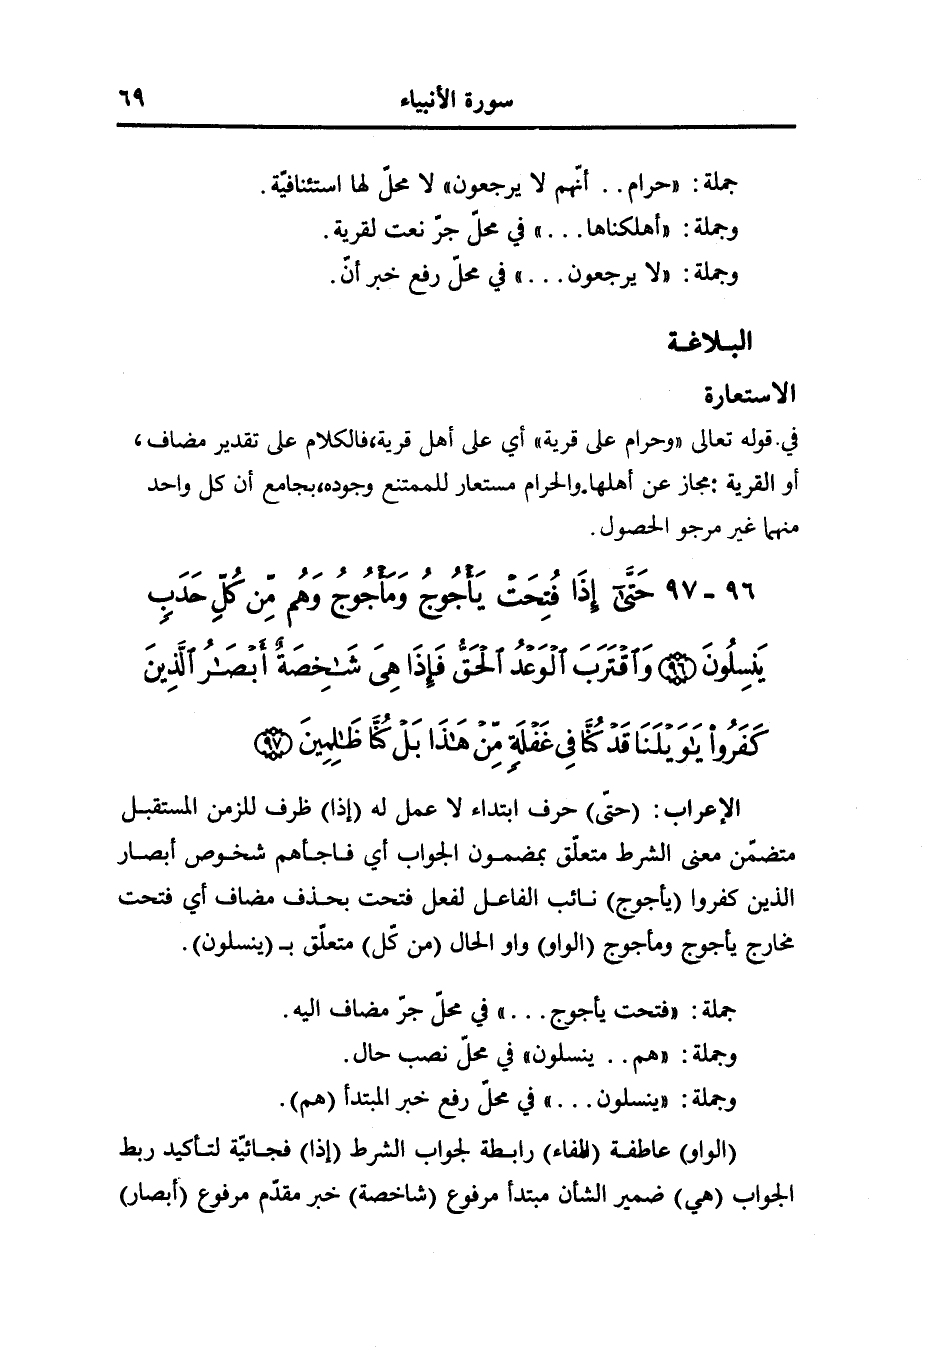 سورة الأنبياء ٦٩
جملة: «حرام.. أنّهم لا يرجعون» لا محلّ لها استئنافيّة.
وجملة: «أهلكناها...» في محلّ جرّ نعت لقرية.
وجملة: «لا يرجعون...» في محلّ رفع خبر أنّ.
البلاغة
الاستعارة
في قوله تعالى «وحرام على قرية» أي على أهل قرية،فالكلام على تقدير مضاف،
أو القرية :مجاز عن أهلها.والحرام مستعار للممتنع وجوده،بجامع أن كل واحد
منهما غير مرجو الحصول.
٩٦ - ٩٧ حَتَّىٰٓ إِذَا فُتِحَتْ يَأْجُوجُ وَمَأْجُوجُ وَهُم مِّن كُلِّ حَدَبٍ
يَنسِلُونَ ﴿٩٦﴾ وَٱقْتَرَبَ ٱلْوَعْدُ ٱلْحَقُّ فَإِذَا هِىَ شَـٰخِصَةٌ أَبْصَـٰرُ ٱلَّذِينَ
كَفَرُواْ يَـٰوَيْلَنَا قَدْ كُنَّا فِى غَفْلَةٍ مِّنْ هَـٰذَا بَلْ كُنَّا ظَـٰلِمِينَ ﴿٩٧﴾
الإعراب: (حتّى) حرف ابتداء لا عمل له (إذا) ظرف للزمن المستقبل
متضمّن معنى الشرط متعلّق بمضمون الجواب أي فاجأهم شخوص أبصار
الذين كفروا (يأجوج) نائب الفاعل لفعل فتحت بحذف مضاف أي فتحت
مخارج يأجوج ومأجوج (الواو) واو الحال (من كّل) متعلّق بـ (ينسلون).
جملة: «فتحت يأجوج...» في محلّ جرّ مضاف اليه.
وجملة: «هم.. ينسلون» في محلّ نصب حال.
وجملة: «ينسلون...» في محلّ رفع خبر المبتدأ (هم).
(الواو) عاطفة (الفاء) رابطة لجواب الشرط (إذا) فجائيّة لتأكيد ربط
الجواب (هي) ضمير الشأن مبتدأ مرفوع (شاخصة) خبر مقدّم مرفوع (أبصار)